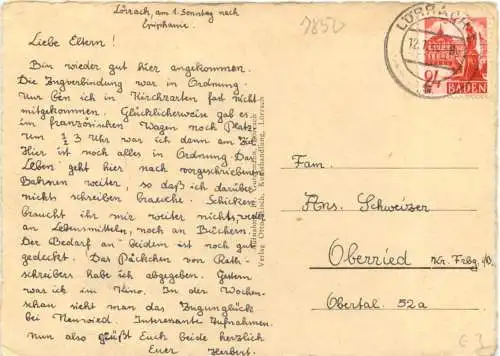 Lörrach, am 1. Sonntag nach
Epiphanie.
7850
Liebe Eltern!
Bin wieder gut hier angekommen.
Die Zugverbindung war in Ordnung.
Nur bin ich in Kirchzarten fast nicht
mitgekommen. Glücklicherweise gab es
im französischen Wagen noch Platz.
Um ½ 3 Uhr war ich dann am Ziel.
Hier ist noch alles in Ordnung. Das
Leben geht hier nach vorgeschriebenen
Bahnen weiter, so daß ich darüber
nichts schreiben brauche. Schicken
braucht ihr mir weiter nichts, weder
an Lebensmitteln, noch an Büchern.
Der Bedarf an beidem ist noch gut
gedeckt. Das Päckchen von Rath-
schreibers habe ich abgegeben. Gestern
war ich im Kino. In der Wochen-
schau sieht man das Zugunglück
bei Neuwied. Interessante Aufnahmen.
Nun also grüßt Euch beide herzlich
Euer Herbert.
Verlag Otto Kunsthandlung, Lörrach
LÖRRACH
12.1.
24
BADEN
Fam.
Ans. Schweizer
Oberried Kr. Frbg.
Obertal 52a